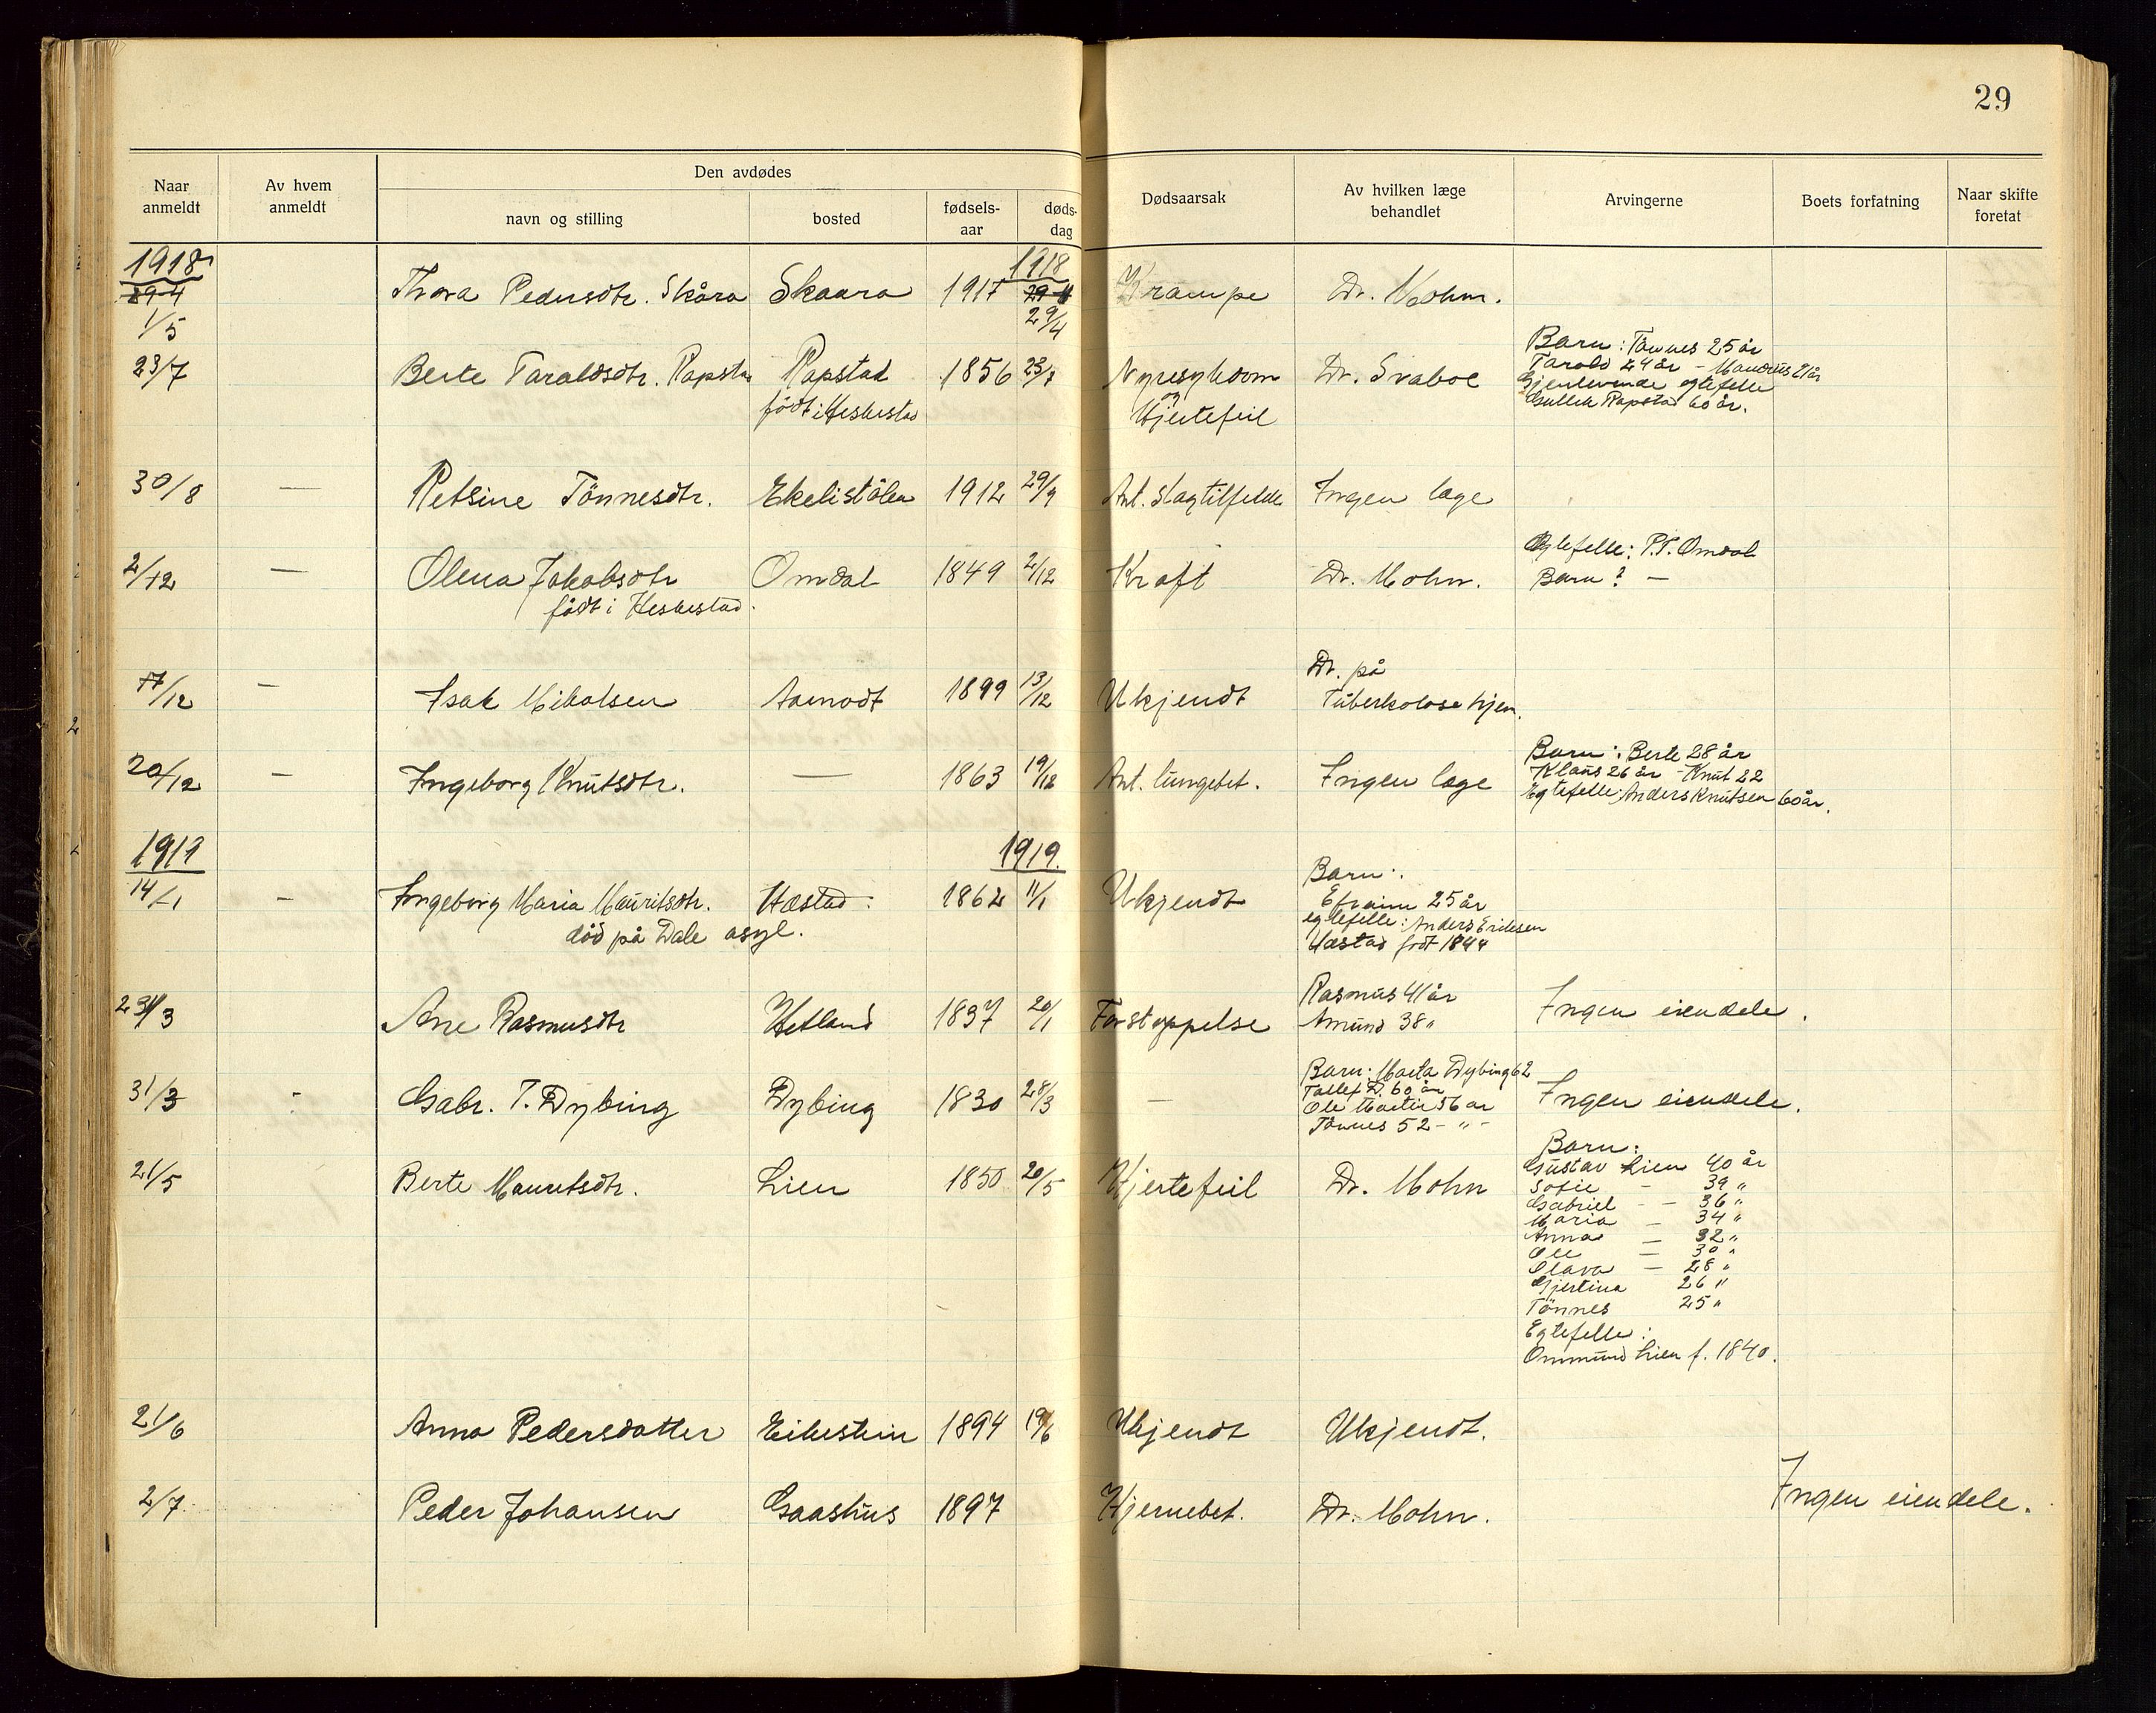 29
Naar anmeldt
Av hvem anmeldt
Den avdødes
navn og stilling
bosted
fødsels-aar
døds-dag
Dødsaarsak
Av hvilken læge behandlet
Arvingerne
Boets forfatning
Naar skifte foretat
1918
1918
29-4 Thora Pedersdtr. Skåra Skaara 1917 29-4 Krampe Dr. Mohn.
1/5
29/4
23/7 Berte Taraldsdtr. Rapstad Rapstad 1856 23/7 Nyresykdom Dr. Svaboe
født i Heskestad
og
Hjertefeil
Barn: Tønnes 25 år
Tarald 24 år - Mandrus 21 år
Gjenlevende egtefelle
Gullek Rapstad 60 år.
30/8 — Petsine Tönnesdtr. Ekelistölen 1912 29/9 Ant. slagtilfelde Ingen læge
2/12 — Olena Jakobsdtr Omdal 1849 2/12 Kraft Dr. Mohn.
født i Heskestad.
Egtefelle: P.T. Omdal
Barn? —
17/12 — Isak Mikalsen Aamodt 1899 13/12 Ukjendt
Dr. på
Tuberkolosehjem.
20/12 — Ingeborg Knutsdtr. — 1863 19/12 Ant. lungebet. Ingen læge
Barn: Berte 28 år
Klaus 26 år - Knut 22
Egtefelle: Anders Knutsen 60 år.
1919 —
1919.
14/1 — Ingeborg Maria Mauritsdtr. Hæstad. 1862 11/1 Ukjendt
død på Dale asyl.
Barn:
Efraim 25 år
egtefelle: Anders Eriksen
Hæstad født 1844
Ane Rasmusdtr Hetland 1837 20/1 Forstoppelse
Rasmus 41 år
Amund 38 "
Ingen eiendele.
31/3 - Gabr. T. Dybing Dybing 1830 28/3 —
Barn: Marta Dybing 62
Tallef D. 60 år
Ole Martin 56 år
Tönnes 52 - " -
Ingen eiendele.
21/5 Berte Mauritsdtr. Lien 1850 20/5 Hjertefeil Dr. Mohn
Barn:
Gustav Lien 40 år
Sofie - 39 "
Gabriel - - 36 "
Maria — 34 "
Anna — 32 "
Ole — 30 "
Olava — 28 "
Gjertina 26 "
Tönnes 25 "
Egtefelle:
Ommund Lien f. 1840.
21/6 Anna Pedersdatter Eikestein 1894 19/6 Ukjendt Ukjendt.
2/7. Peder Johansen Gaashus 1897 Hjernebet. Dr. Mohn. Ingen eiendele.